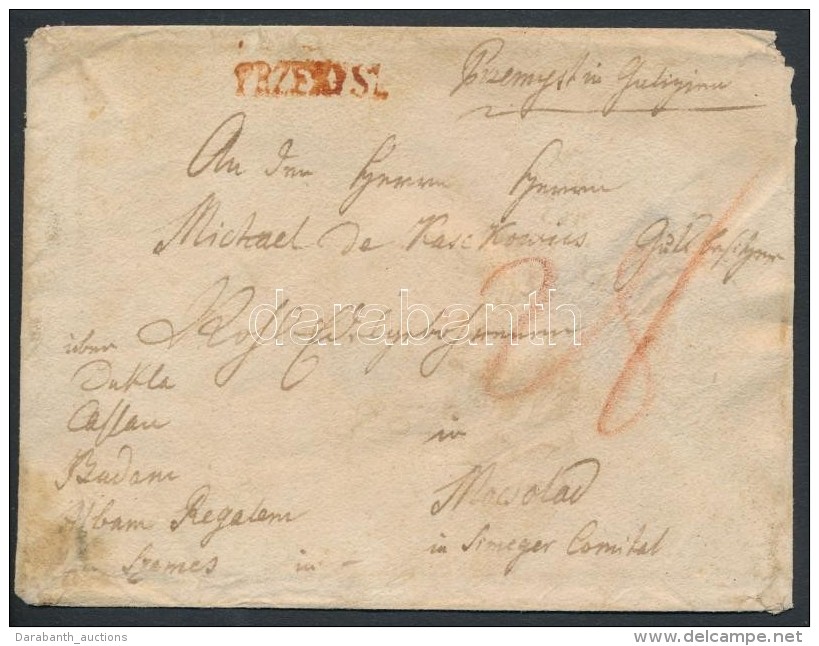 PRZEMYSL
Przemysl in Galizien
An den Herrn Herrn
Michael de Kasckowics Guttsbesitzer
über
Dukla
Cassau
Budam
Albam Regalem
Szemes in
in
Mocsolad
in Simeger Comitat
darabanth
Darabanth_auctions
http://www.delcampe.net